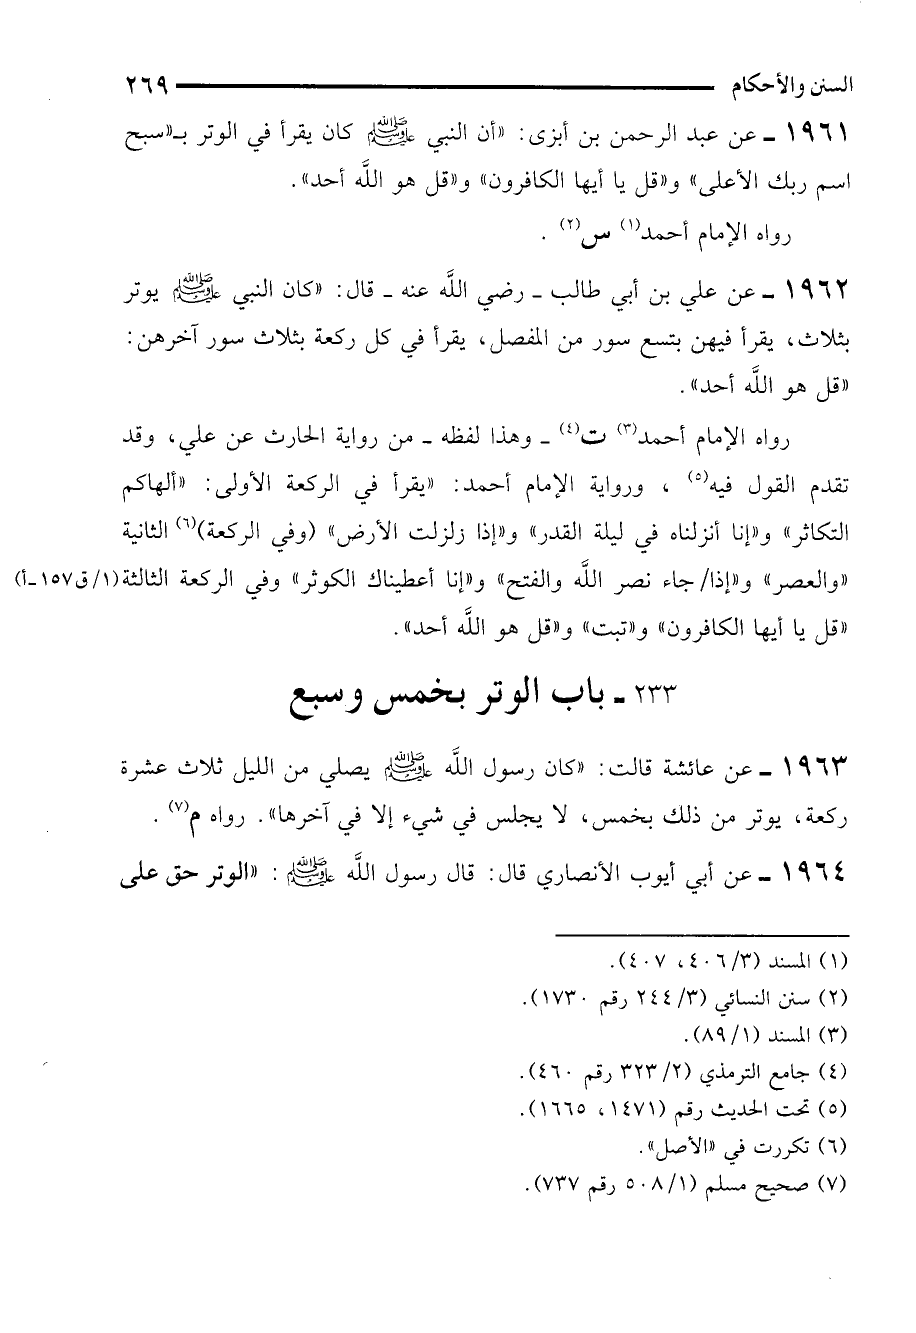 السنن والأحكام ٢٦٩
١٩٦١ ـ عن عبد الرحمن بن أبزى: «أن النبي ﷺ كان يقرأ في الوتر بـ«سبح
اسم ربك الأعلى» و«قل يا أيها الكافرون» و«قل هو اللَّه أحد».
رواه الإمام أحمد(١) س(٢) .
١٩٦٢ ـ عن علي بن أبي طالب ـ رضي اللَّه عنه ـ قال: «كان النبي ﷺ يوتر
بثلاث، يقرأ فيهن بتسع سور من المفصل، يقرأ في كل ركعة بثلاث سور آخرهن:
«قل هو اللَّه أحد».
رواه الإمام أحمد(٣) ت(٤) ـ وهذا لفظه ـ من رواية الحارث عن علي، وقد
تقدم القول فيه(٥) ، ورواية الإمام أحمد: «يقرأ في الركعة الأولى: «ألهاكم
التكاثر» و«إنا أنزلناه في ليلة القدر» و«إذا زلزلت الأرض» (وفي الركعة)(٦) الثانية
«والعصر» و«إذا/ جاء نصر اللَّه والفتح» و«إنا أعطيناك الكوثر» وفي الركعة الثالثة (١/ق١٥٧-أ)
«قل يا أيها الكافرون» و«تبت» و«قل هو اللَّه أحد».
٢٣٣ ـ باب الوتر بخمس وسبع
١٩٦٣ ـ عن عائشة قالت: «كان رسول اللَّه ﷺ يصلي من الليل ثلاث عشرة
ركعة، يوتر من ذلك بخمس، لا يجلس في شيء إلا في آخرها». رواه م(٧) .
١٩٦٤ ـ عن أبي أيوب الأنصاري قال: قال رسول اللَّه ﷺ : «الوتر حق على
(١) المسند (٣/ ٤٠٦، ٤٠٧).
(٢) سنن النسائي (٣/ ٢٤٤ رقم ١٧٣٠).
(٣) المسند (١/ ٨٩).
(٤) جامع الترمذي (٢/ ٣٢٣ رقم ٤٦٠).
(٥) تحت الحديث رقم (١٤٧١، ١٦٦٥).
(٦) تكررت في «الأصل».
(٧) صحيح مسلم (١/ ٥٠٨ رقم ٧٣٧).